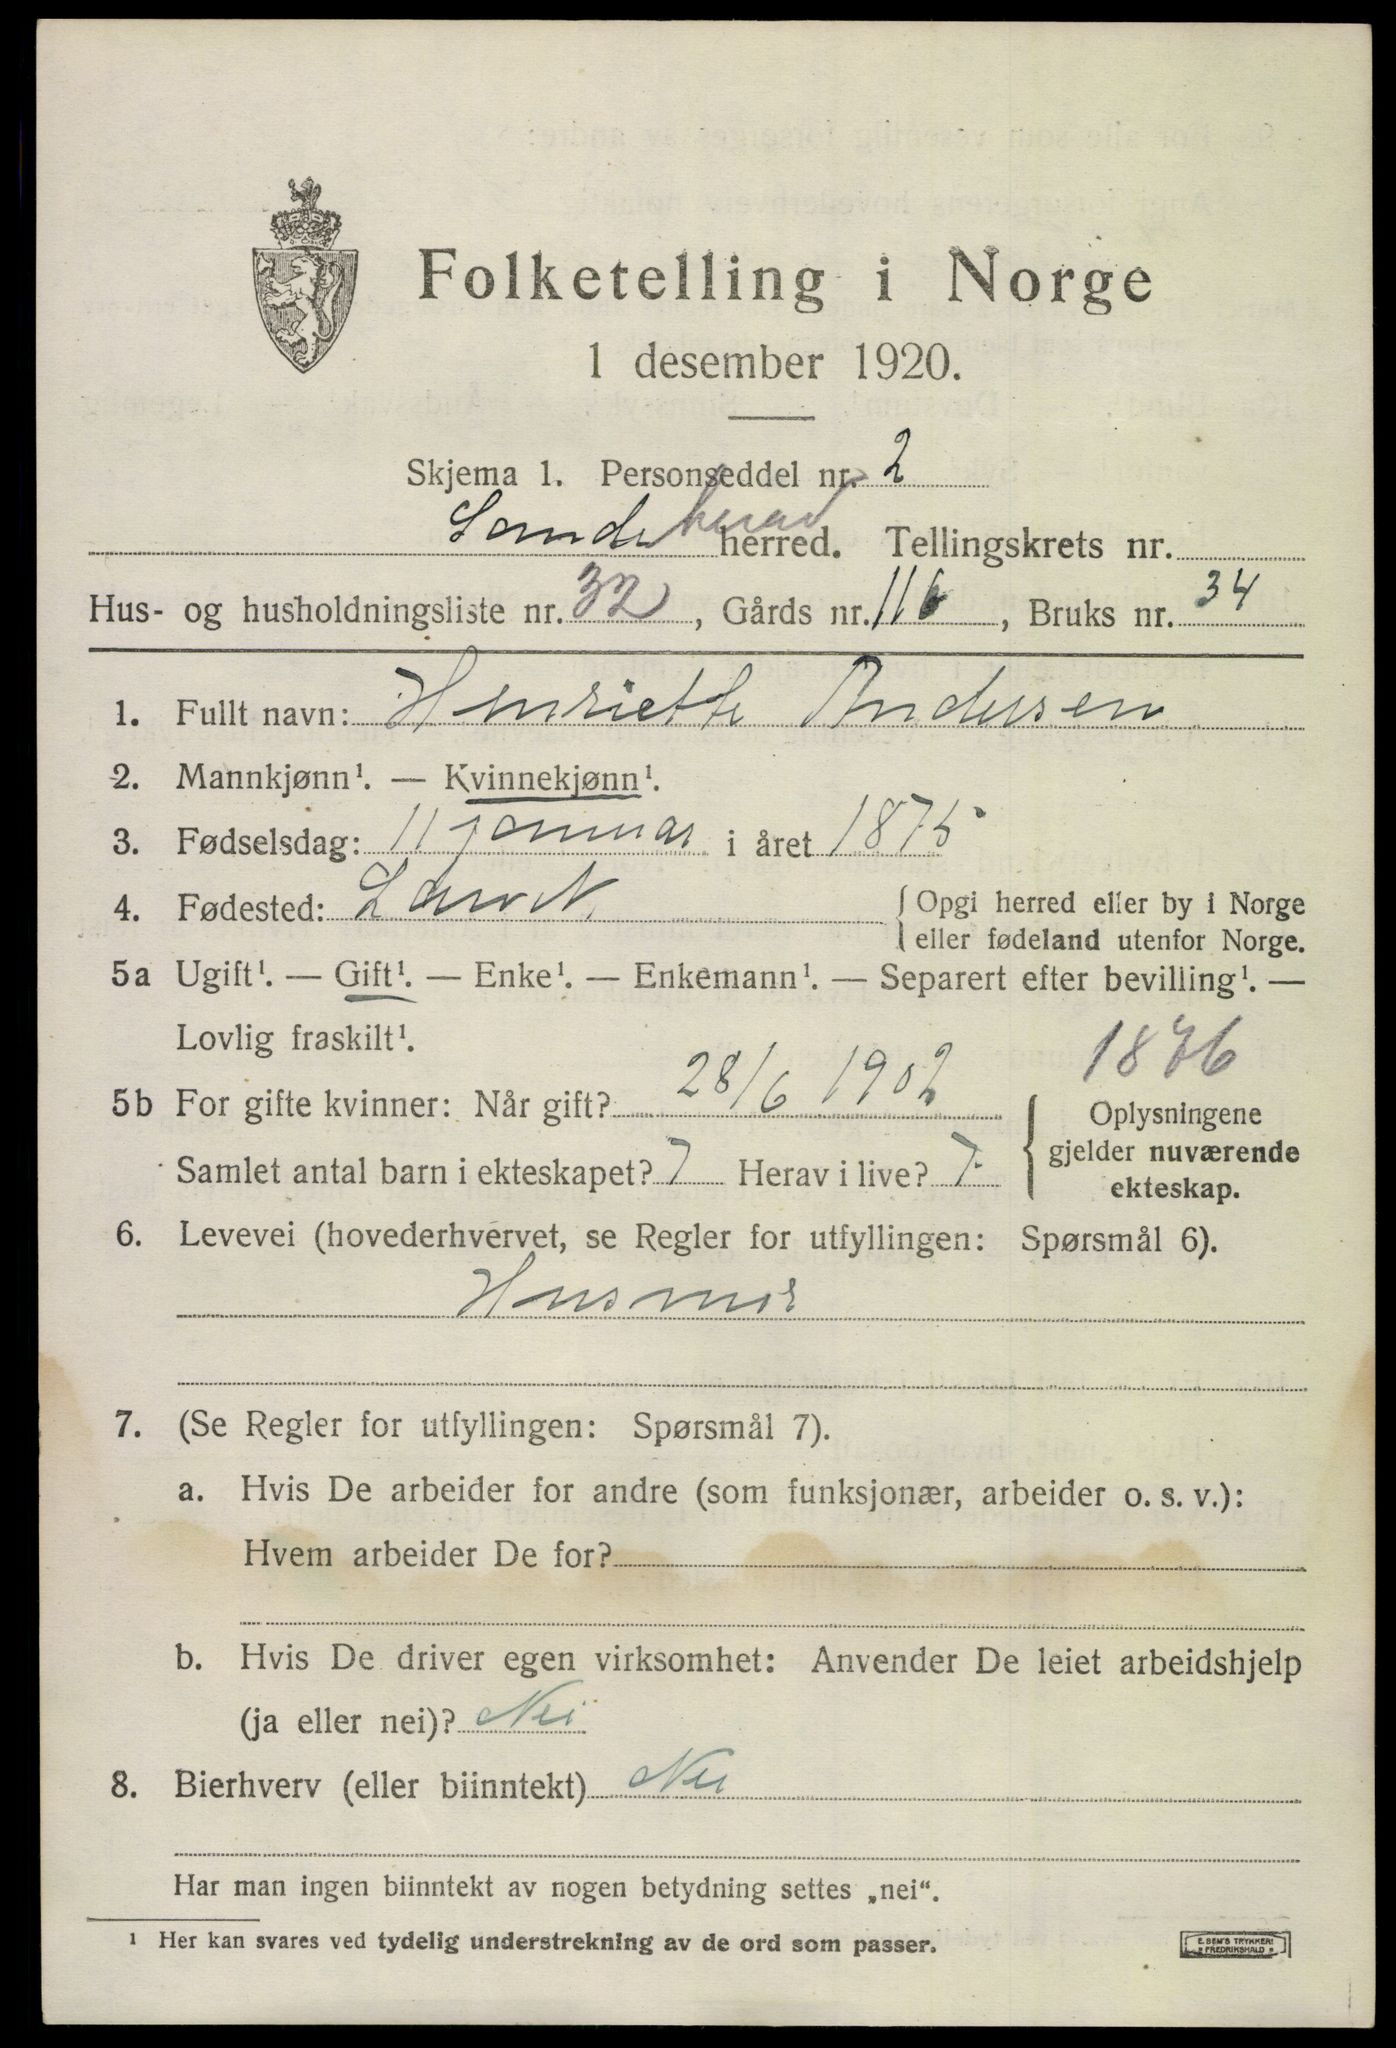 Folketelling i Norge
1 desember 1920.
Skjema 1. Personseddel nr. 2
Sande herad herred. Tellingskrets nr.
Hus- og husholdningsliste nr. 32, Gårds nr. 116, Bruks nr. 34
1. Fullt navn: Henriette Andersen
2. Mannkjønn¹. — Kvinnekjønn¹.
3. Fødselsdag: 11 januar i året 1875
4. Fødested: Larvik {Opgi herred eller by i Norge
eller fødeland utenfor Norge.
5a Ugift¹. — Gift¹. — Enke¹. — Enkemann¹. — Separert efter bevilling¹. —
Lovlig fraskilt¹.
1876
5b For gifte kvinner: Når gift? 28/6 1902
Samlet antal barn i ekteskapet? 7 Herav i live? 7.
{Oplysningene
gjelder nuværende
ekteskap.
6. Levevei (hovederhvervet, se Regler for utfyllingen: Spørsmål 6).
Husmor
7. (Se Regler for utfyllingen: Spørsmål 7).
a. Hvis De arbeider for andre (som funksjonær, arbeider o. s. v.):
Hvem arbeider De for?
b. Hvis De driver egen virksomhet: Anvender De leiet arbeidshjelp
(ja eller nei)? Nei
8. Bierhverv (eller biinntekt) Nei
Har man ingen biinntekt av nogen betydning settes „nei“.
¹ Her kan svares ved tydelig understrekning av de ord som passer.
E. SEM'S TRYKKERI
» FREDRIKSHALD »